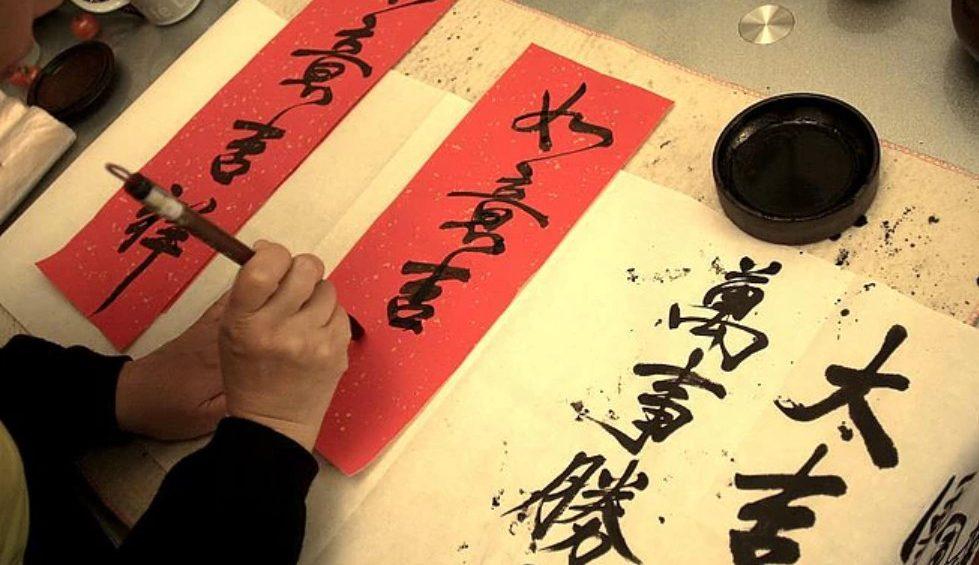 大吉
萬事勝
如意吉
意吉祥